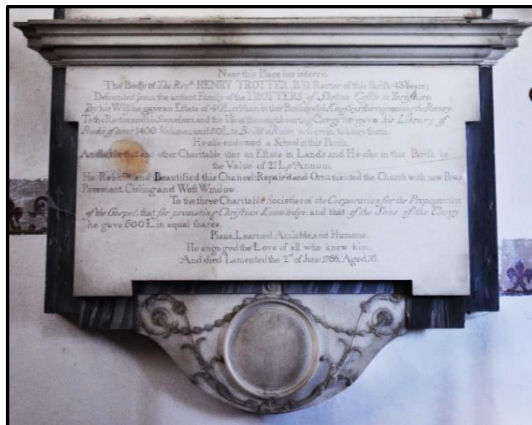 Near this Place lies interr'd
The Body of The Rev.d HENRY TROTTER B.D. Rector of this Parish 43 Years
Descended from the antient Family of the TROTTERS, of Skelton Castle in Yorkshire.
By his Will he gave an Estate of 40L. p.r Ann. in this Parish adjoining the Rectory,
To the Rectors his Successors, and the Use of the neighbouring Clergy he gave his Library of
Books of about 1400 Volumes, and 50L to Build a Room wherein to keep them.
He also endowed a School in this Parish,
And for that and other Charitable uses an Estate in Lands and Houses in this Parish to
the Value of 21L p.r Annum.
He Rebuilt and Beautified this Chancel: Repaired and Ornamented the Church with new Pews
Pavement, Cieling and West Window.
To the three Charitable Societies of the Corporation for the Propagation
of the Gospel, that for promoting Christian Knowledge, and that of the Sons of the Clergy
he gave 600L in equal shares.
Pious, Learned, Amiable, and Humane,
He engaged the Love of all who knew him,
And died Lamented the 2.nd of June 1766, Aged